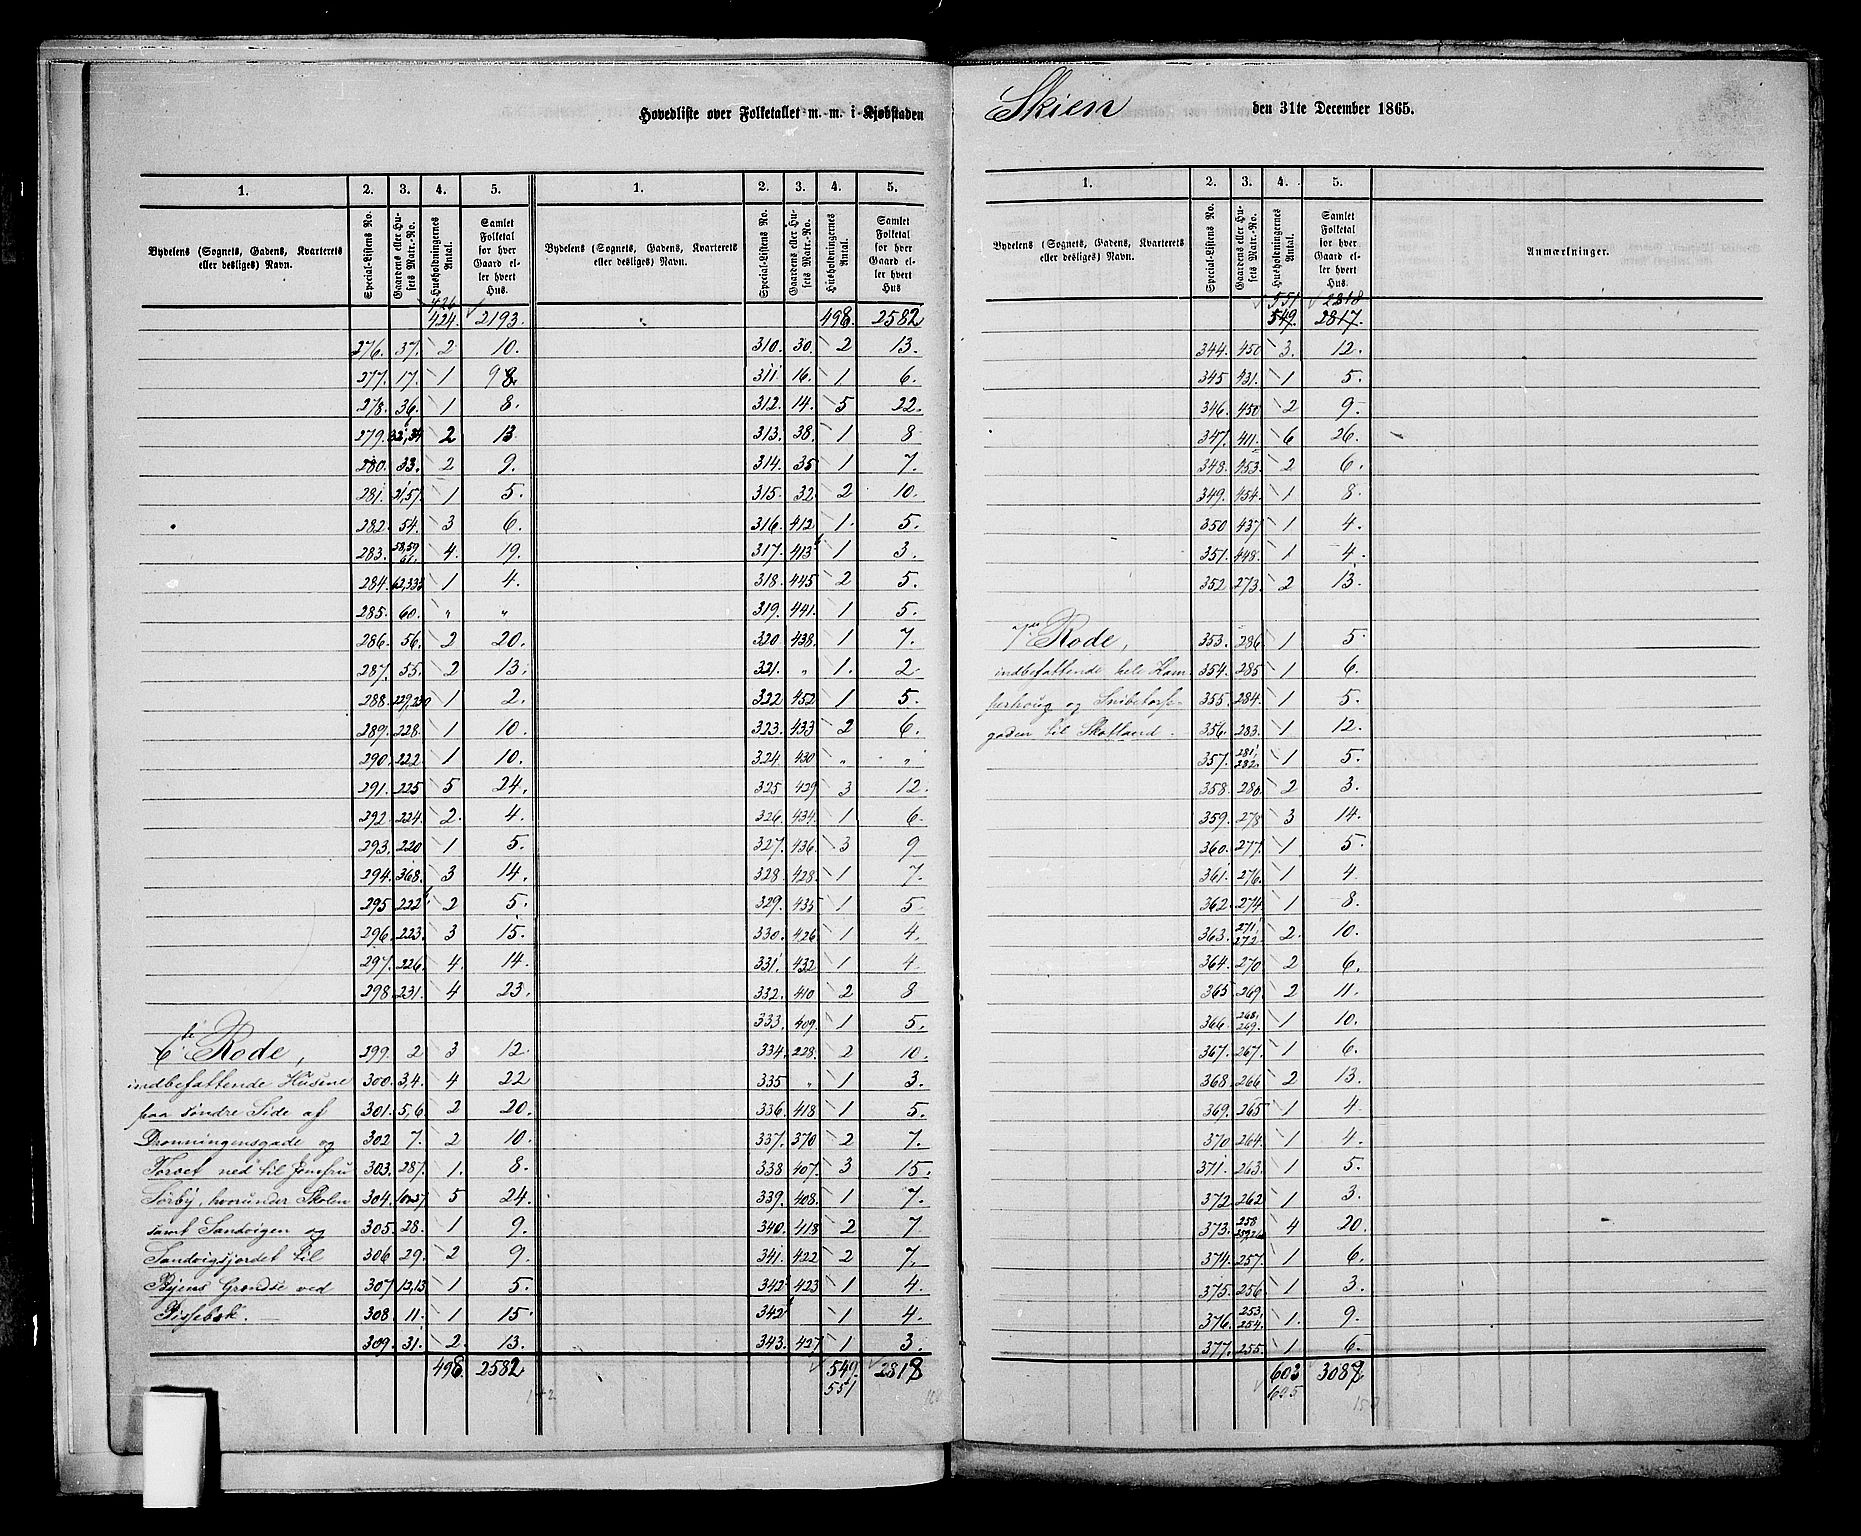 Hovedliste over Folketallet m. m. i Kjøbstaden Skien den 31te December 1865.
1. 2. 3. 4. 5. 1. 2. 3. 4. 5.
Bydelens (Sognets, Gadens, Kvarterets eller desliges) Navn. Special-Listens No. Gaardens eller Husets Matr.-No. Husholdningernes Antal. Samlet Folketal for hver Gaard eller hvert Hus.
Bydelens (Sognets, Gadens, Kvarterets eller desliges) Navn. Special-Listens No. Gaardens eller Husets Matr.-No. Husholdningernes Antal. Samlet Folketal for hver Gaard eller hvert Hus
426
424. 2193.
276. 37. 2 10.
277. 17. 1 9
278. 36. 1 8.
279. 32, 34 2 13
280. 33. 2 9.
281. 21, 57. 1 5.
282. 54. 3 6.
283. 58, 59 61. 4. 19.
284. 62, 333 1 4.
285. 60. " "
286. 56. 2 20.
287. 55. 2 13.
288. 229, 230 1 2.
289. 228. 1 10.
290. 222. 1 10.
291. 225 5 24.
292. 224. 2. 4.
293. 220 1 5.
294. 368. 3 14.
295 222 b 2 5.
296. 223. 3 15.
297. 226. 4. 14.
298. 231. 4 23.
6te Rode,
299. 2 3 12.
indbefattende Husene 300. 3,4. 4 22
paa søndre Side af 301. 5,6. 2 20.
Dronningensgade og 302 7. 2 10.
Torvet ned til Jomfru 303. 287. 1. 8.
Sørby, hvorunder Skolen 304. 5 24.
samt Sandvigen og 305. 28. 1 9.
Sandvigsjordet til 306 29. 2 9.
Byens Grændse ved 307 12,13 1 5.
308. 11. 1 15
309. 31. 2. 13.
498. 2582
498. 2582
310. 30. 2 13.
311 16. 1 6.
312. 14. 5 22.
313. 38. 1 8
314. 35 1 7.
315. 32. 2 10.
316. 412 1. 5.
317. 413 b 1 3.
318. 445 2 5.
319. 441. 1 5.
320 438. 1 7.
321. " 1. 2
322 452 1 5.
323. 433 2 6.
324. 430 " "
325 429 3 12.
326. 434. 1 6.
327. 436. 3 9
328 428. 1 7.
329. 435 1 5
330. 426 1 4.
331. 432 1 4.
332. 410 2 8
333. 409. 1 5.
334. 228. 2 10.
335 " 1 3.
336. 418 1 5.
337. 370 2 7.
338 407. 3 15.
339. 408. 1 7.
340. 418 2 7
341. 422 2 7.
342 a 423 1 4.
342 b 1 4.
343. 427 1 3.
549. 2818
551
1. 2. 3. 4. 5.
Bydelens (Sognets, Gadens, Kvarterets eller desliges) Navn. Special-Listens No. Gaardens eller Husets Matr.-No. Husholdningernes Antal. Samlet Folketal for hver Gaard eller hvert Hus Anmærkninger.
551 2818
549. 2817.
344. 450 3. 12.
345 431. 1 5.
346. 450 2 9.
347. 411. 6 26.
348. 453. 2 6.
349. 454. 1 8.
350 437 1 4.
351. 448. 1 4.
352 273. 2 13.
7de Rode, 353. 286 1 5
indbefattende hele Kam- 354. 285 1 6.
perhoug og Snibetorp- 355. 284. 1 5.
gaden til Skotland. 356. 283. 1 12.
357. 281, 282. 1 5.
358. 280. 2 3.
359. 278 3 14.
360. 277. 1 5.
361. 276. 1 4
362. 274. 1 8.
363. 271, 272. 2. 10.
364. 270 2 6.
365 269. 2 11.
366 268, 269. 1 10.
367. 267. 1 6.
368. 266 2 13.
369. 265 1 4.
370 264. 1 4.
371. 263. 1 5.
372. 262 1 3.
373. 258 4 20.
374. 257. 1 6.
375. 256. 1 3.
376. 253, 254. 1. 9.
377. 255. 1 6.
603 3087